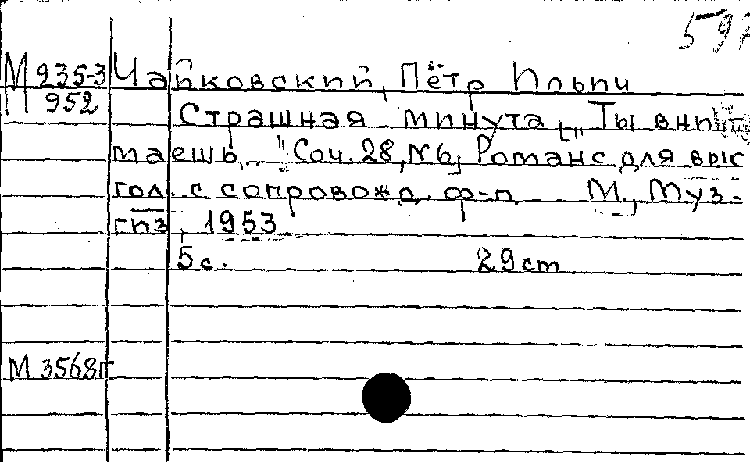 597
М 935-3 Чайковский, Пётр Ильич
П 952
Страшная минута [„Ты вни-
маешь..." Соч. 28, №6] Романс для выс.
гол. с сопровожд. ф-п. М., Муз-
гиз, 1953
5с. 29cm
М 3568г